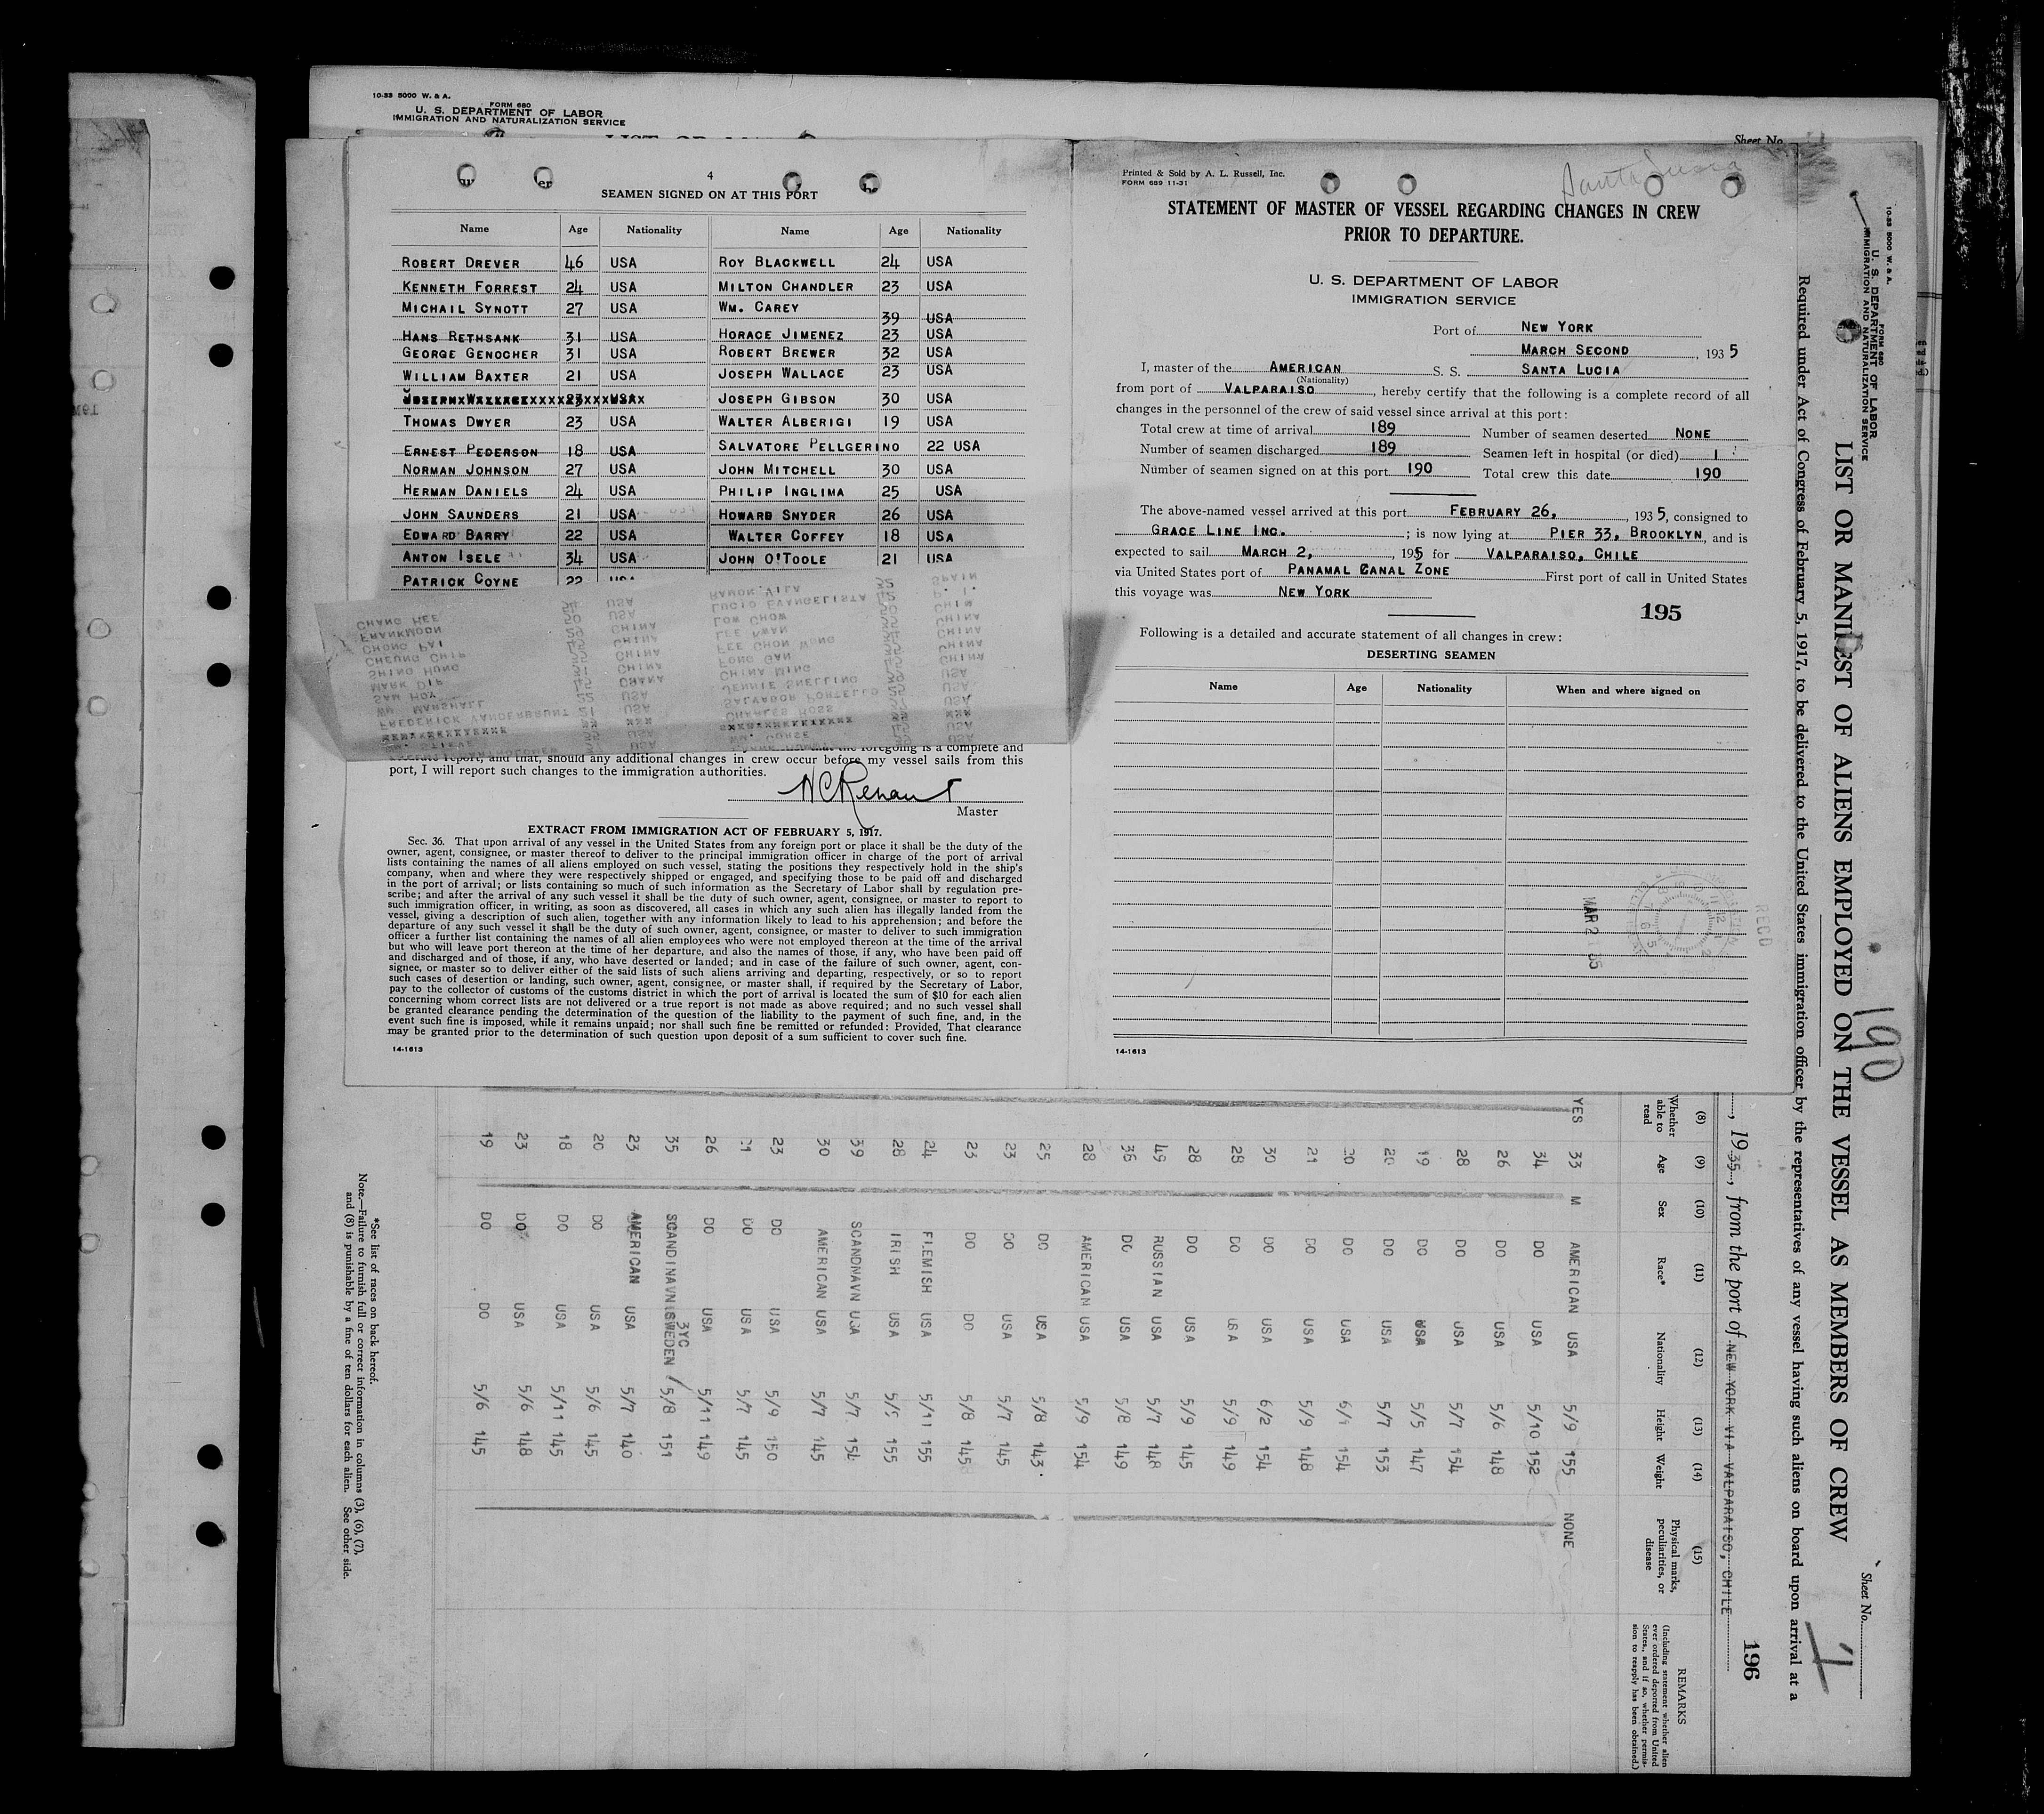 10-33 5000 W. & A.
FORM 680
U. S. DEPARTMENT OF LABOR
IMMIGRATION AND NATURALIZATION SERVICE
Sheet No.
4
SEAMEN SIGNED ON AT THIS PORT
Name Age Nationality Name Age Nationality
ROBERT DREVER 46 USA ROY BLACKWELL 24 USA
KENNETH FORREST 24 USA MILTON CHANDLER 23 USA
MICHAIL SYNOTT 27 USA WM. CAREY 39 USA
HANS RETHSANK 31 USA HORACE JIMENEZ 23 USA
GEORGE GENOCHER 31 USA ROBERT BREWER 32 USA
WILLIAM BAXTER 21 USA JOSEPH WALLACE 23 USA
JOSEPH WALLACE 23 USA JOSEPH GIBSON 30 USA
THOMAS DWYER 23 USA WALTER ALBERIGI 19 USA
ERNEST PEDERSON 18 USA SALVATORE PELLGERINO 22 USA
NORMAN JOHNSON 27 USA JOHN MITCHELL 30 USA
HERMAN DANIELS 24 USA PHILIP INGLIMA 25 USA
JOHN SAUNDERS 21 USA HOWARD SNYDER 26 USA
EDWARD BARRY 22 USA WALTER COFFEY 18 USA
ANTON ISELE 34 USA JOHN O'TOOLE 21 USA
PATRICK COYNE 22 USA
CHANG KEE USA RAMON VILA SPAIN
FRANKMOON USA LUCIO EVANGELISTA P. I.
CHONG PAI CHINA LOW CHOW CHIN
CHEUNG CHIP CHINA LEE KWAN CHINA
SHING HUNG CHINA FEE CHON WONG CHINA
MARK DIP CHINA FONG GAN CHINA
SAM HOY CHINA MING
WM. MARSHALL USA JENNIE SNELLING USA
FREDERICK VANDERBRUNT 21 USA SALVADOR PORTELLO USA
CHARLES ROSS USA
the foregoing is a complete and
report, and that, should any additional changes in crew occur before my vessel sails from this
port, I will report such changes to the immigration authorities.
Master
EXTRACT FROM IMMIGRATION ACT OF FEBRUARY 5, 1917.
Sec. 36. That upon arrival of any vessel in the United States from any foreign port or place it shall be the duty of the
owner, agent, consignee, or master thereof to deliver to the principal immigration officer in charge of the port of arrival
lists containing the names of all aliens employed on such vessel, stating the positions they respectively hold in the ship's
company, when and where they were respectively shipped or engaged, and specifying those to be paid off and discharged
in the port of arrival; or lists containing so much of such information as the Secretary of Labor shall by regulation pre-
scribe; and after the arrival of any such vessel it shall be the duty of such owner, agent, consignee, or master to report to
such immigration officer, in writing, as soon as discovered, all cases in which any such alien has illegally landed from the
vessel, giving a description of such alien, together with any information likely to lead to his apprehension; and before the
departure of any such vessel it shall be the duty of such owner, agent, consignee, or master to deliver to such immigration
officer a further list containing the names of all alien employees who were not employed thereon at the time of the arrival
but who will leave port thereon at the time of her departure, and also the names of those, if any, who have been paid off
and discharged and of those, if any, who have deserted or landed; and in case of the failure of such owner, agent, con-
signee, or master so to deliver either of the said lists of such aliens arriving and departing, respectively, or so to report
such cases of desertion or landing, such owner, agent, consignee, or master shall, if required by the Secretary of Labor,
pay to the collector of customs of the customs district in which the port of arrival is located the sum of $10 for each alien
concerning whom correct lists are not delivered or a true report is not made as above required; and no such vessel shall
be granted clearance pending the determination of the question of the liability to the payment of such fine, and, in the
event such fine is imposed, while it remains unpaid; nor shall such fine be remitted or refunded: Provided, That clearance
may be granted prior to the determination of such question upon deposit of a sum sufficient to cover such fine.
14-1613
Printed & Sold by A. L. Russell, Inc.
FORM 689 11-31
Santa Lucia
STATEMENT OF MASTER OF VESSEL REGARDING CHANGES IN CREW
PRIOR TO DEPARTURE.
U. S. DEPARTMENT OF LABOR
IMMIGRATION SERVICE
Port of NEW YORK
MARCH SECOND, 1935
I, master of the AMERICAN S. S. SANTA LUCIA
(Nationality)
from port of VALPARAISO, hereby certify that the following is a complete record of all
changes in the personnel of the crew of said vessel since arrival at this port:
Total crew at time of arrival 189 Number of seamen deserted NONE
Number of seamen discharged 189 Seamen left in hospital (or died) 1
Number of seamen signed on at this port 190 Total crew this date 190
The above-named vessel arrived at this port FEBRUARY 26, 1935, consigned to
GRACE LINE INC.; is now lying at PIER 33, BROOKLYN, and is
expected to sail MARCH 2, 195 for VALPARAISO, CHILE
via United States port of PANAMAL CANAL ZONE First port of call in United States
this voyage was NEW YORK
195
Following is a detailed and accurate statement of all changes in crew:
DESERTING SEAMEN
Name Age Nationality When and where signed on
MAR 2 35
RECD
14-1613
10-33 5000 W. & A.
FORM 680
U. S. DEPARTMENT OF LABOR
IMMIGRATION AND NATURALIZATION SERVICE
Sheet No.
LIST OR MANIFEST OF ALIENS EMPLOYED ON THE VESSEL AS MEMBERS OF CREW
190
Required under Act of Congress of February 5, 1917, to be delivered to the United States immigration officer by the representatives of any vessel having such aliens on board upon arrival at a
, 1935, from the port of NEW YORK VIA VALPARAISO, CHILE
196
(8) (9) (10) (11) (12) (13) (14) (15)
Whether able to read Age Sex Race* Nationality Height Weight Physical marks, peculiarities, or disease REMARKS
(Including statement whether alien ever ordered deported from United States, and if so, whether permission to reapply has been obtained.)
YES 33 M AMERICAN USA 5/9 155 NONE
34 DO USA 5/10 152
26 DO USA 5/6 148
28 DO USA 5/7 154
19 DO USA 5/5 147
20 DO USA 5/7 153
20 DO USA 154
21 DO USA 5/9 148
30 DO USA 6/2 154
28 DO USA 5/9 149
28 DO USA 5/9 145
49 RUSSIAN USA 5/7 148
36 DO USA 5/8 149
28 AMERICAN USA 5/9 154
25 DO USA 5/8 143
23 DO USA 5/7 145
23 DO DO 5/8 145
24 FLEMISH USA 5/11 155
28 IRISH USA 155
39 SCANDNAVN USA 5/7 154
30 AMERICAN USA 5/7 145
23 DO USA 5/9 150
21 DO USA 5/7 145
26 DO USA 5/11 149
3YC
35 SCANDINAVN SWEDEN 5/8 151
23 AMERICAN USA 5/7 140
20 DO USA 5/6 145
18 DO USA 5/11 145
23 DO USA 5/6 148
19 DO DO 5/6 145
*See list of races on back hereof.
Note.—Failure to furnish full or correct information in columns (3), (6), (7),
and (8) is punishable by a fine of ten dollars for each alien. See other side.